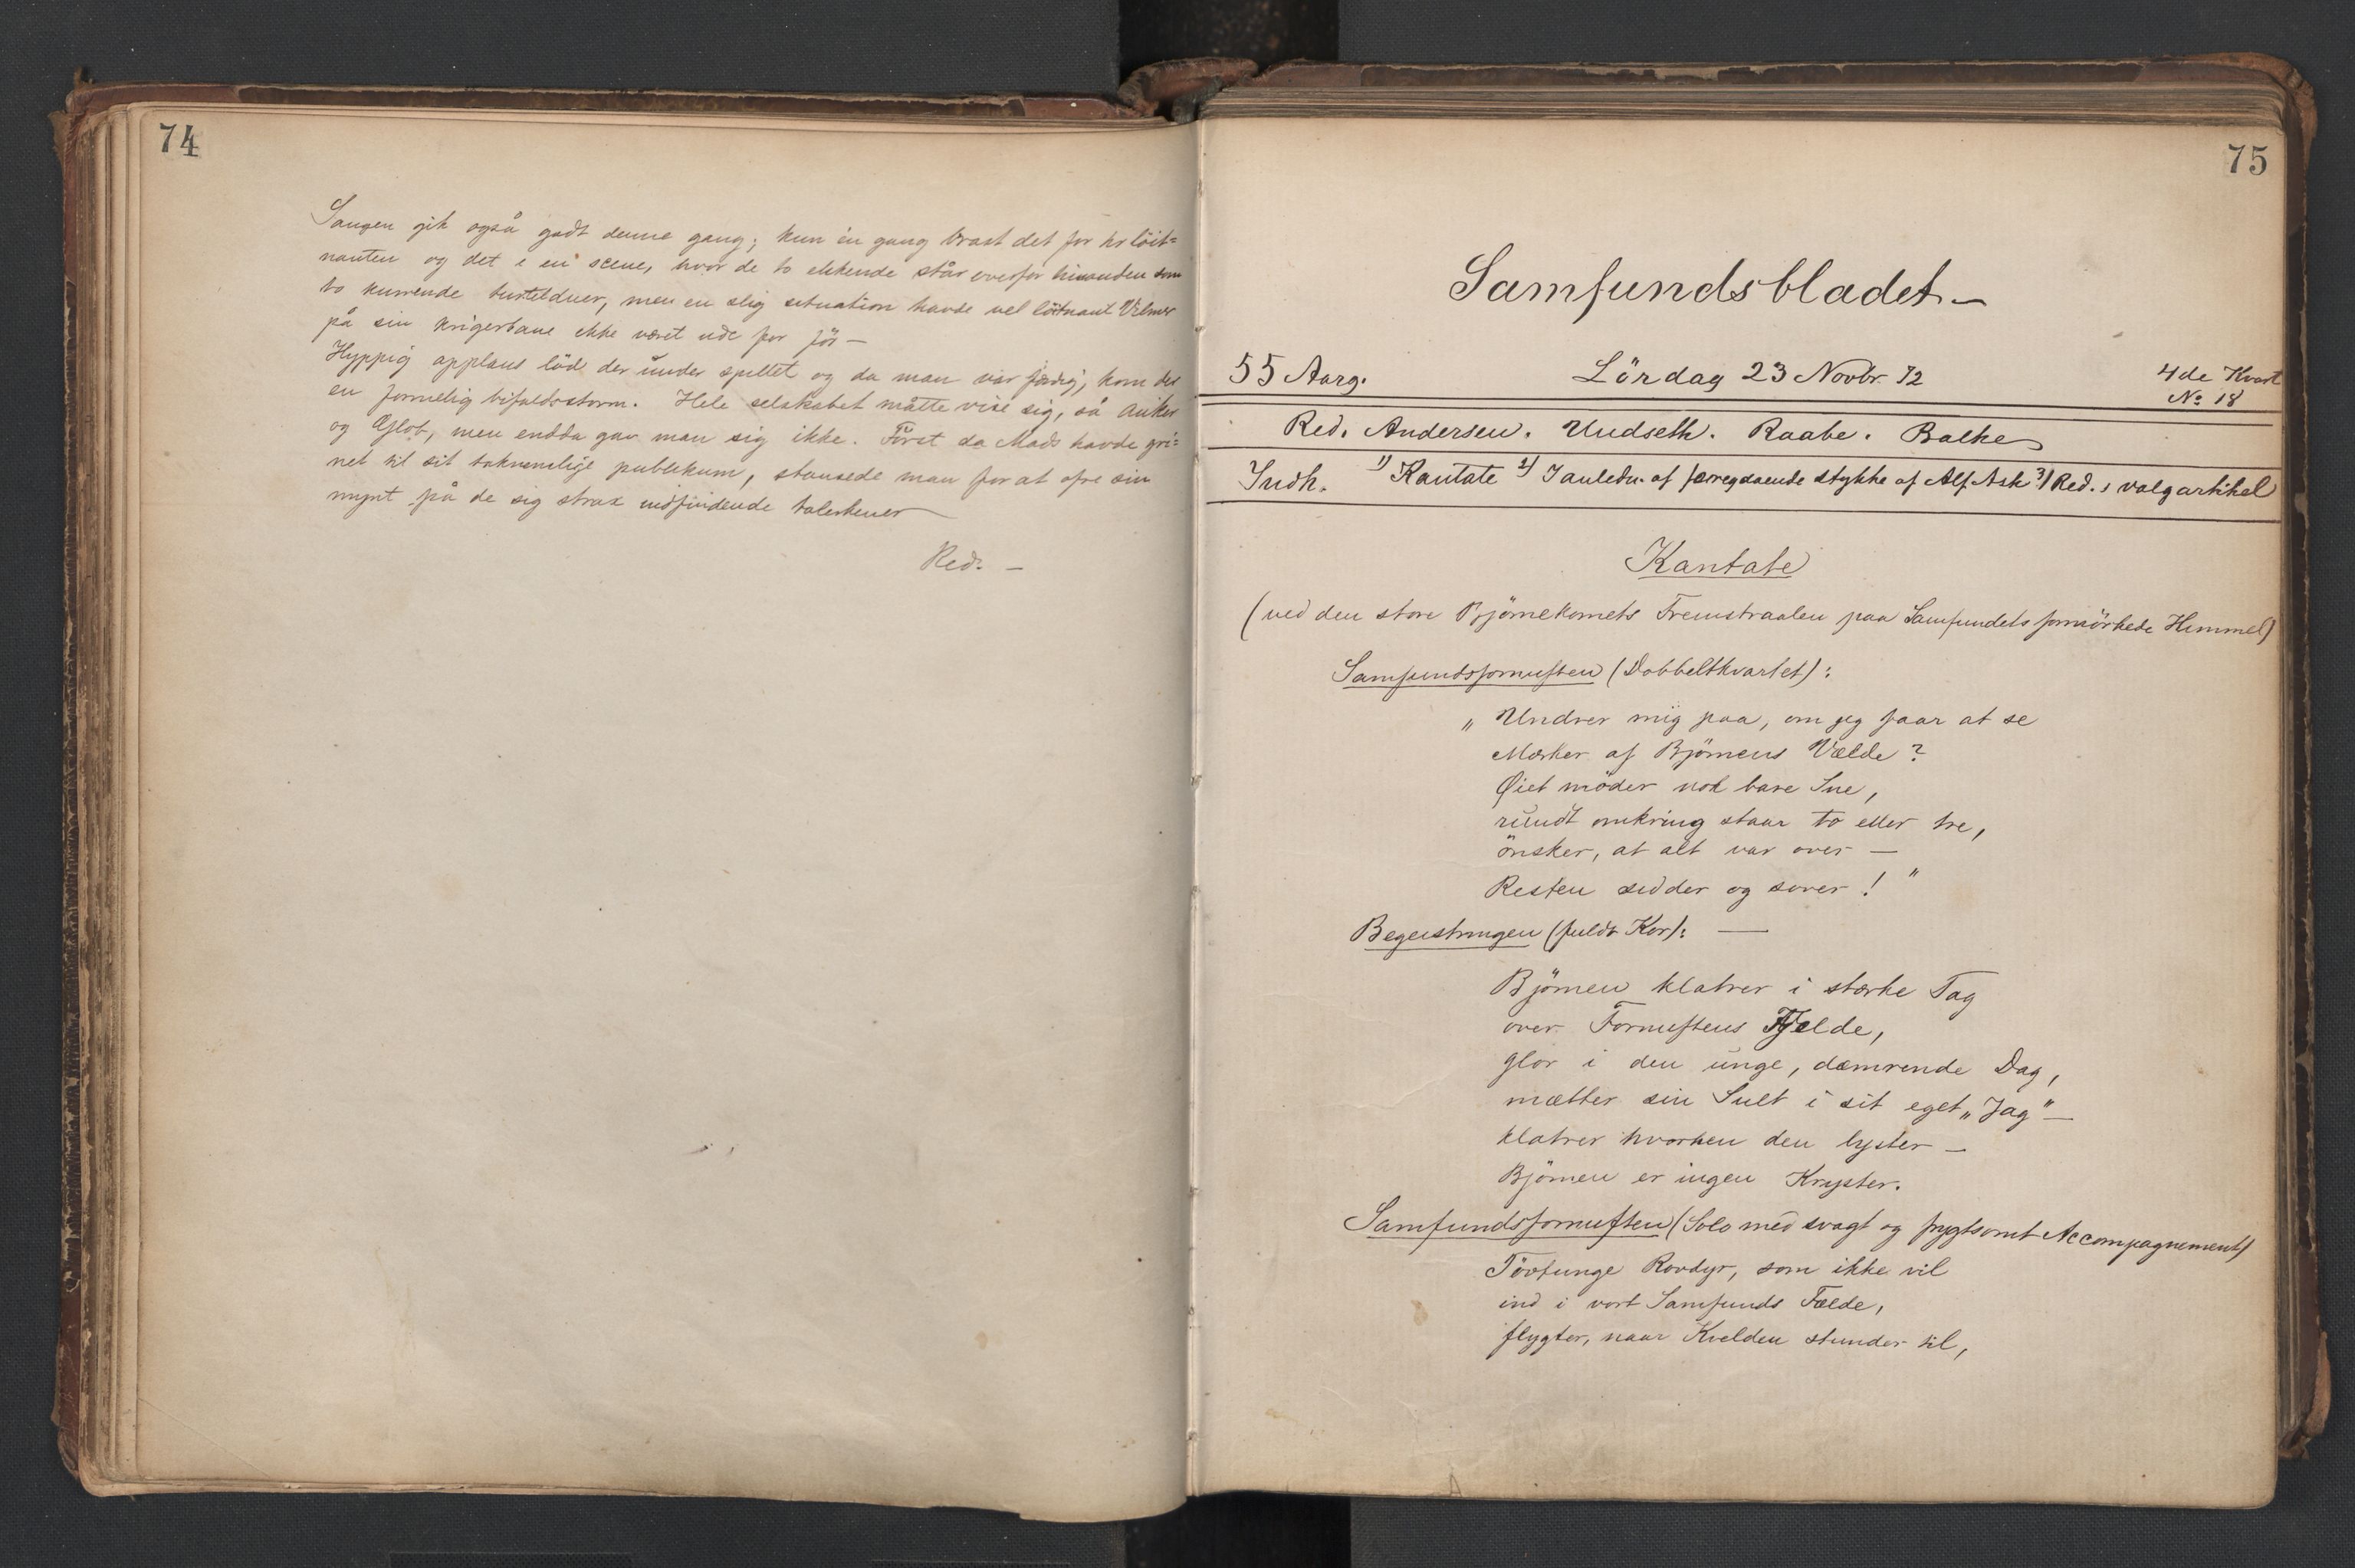 74
Sangen gik også godt denne gang; kun én gang brast det for hr löit=
nanten og det i en scene, hvor de to elskende står overfor hinanden som
to kurrende turtelduer, men en slig situation havde vel löitnant Vilmer
på sin krigerbane ikke været ude for för —
Hyppig applaus löd der under spillet og da man var færdig, kom der
en formelig bifaldsstorm. Hele selskabet måtte vise sig, så Anker
og Glob, men endda gav man sig ikke. Först da Mads havde gri=
net til sit taknemlige publikum, stansede man for at ofre sin
mynt på de sig strax indfindende talerkener
Red. —
75
Samfundsbladet. —
55 Aarg. Lördag 23 Novbr. 72 4de Kvart
No 18
Red. Andersen. Undseth. Raabe. Balke
Indh. 1) Kantate 2) I anledn. af foregaaende stykke af Alf Ask 3) Red.s valgartikel
Kantate
(ved den store Björnekomets Fremstraalen paa Samfundets formörkede Himmel)
Samfundsfornuften (Dobbeltkvartet):
„ Undrer mig paa, om jeg faar at se
Mærker af Björnens Vælde?
Øiet möder nok bare Sne,
rundt omkring staar to eller tre,
önsker, at alt var over —
Resten sidder og sover! "
Begeistringen (fuldt Kor): —
Björnen klatrer i stærke Tag
over Fornuftens Fjelde,
glor i den unge, dæmrende Dag,
mætter sin Sult i sit eget „Jag" —
klatrer hvorhen den lyster —
Björnen er ingen Kryster.
Samfundsfornuften (Solo med svagt og frygtsomt Accompagnement)
Tövtunge Rovdyr, som ikke vil
ind i vort Samfunds Fælde,
flygter, naar Kvelden stunder til,